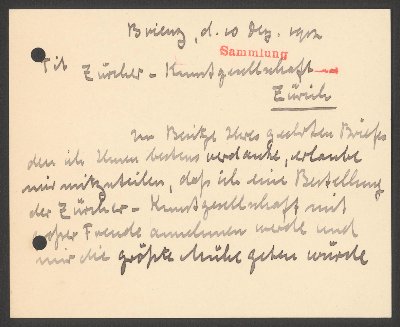 Brienz, d. 10 Dez. 1902
Sammlung
Tit
Zürcher - Kunstgesellschaft
Zürich
Im Besitze Ihres geehrten Briefes
den ich Ihnen bestens verdanke, erlaube
mir mitzuteilen, daß ich eine Bestellung
der Zürcher - Kunstgesellschaft mit
großer Freude annehmen werde und
mir die größte Mühe geben würde